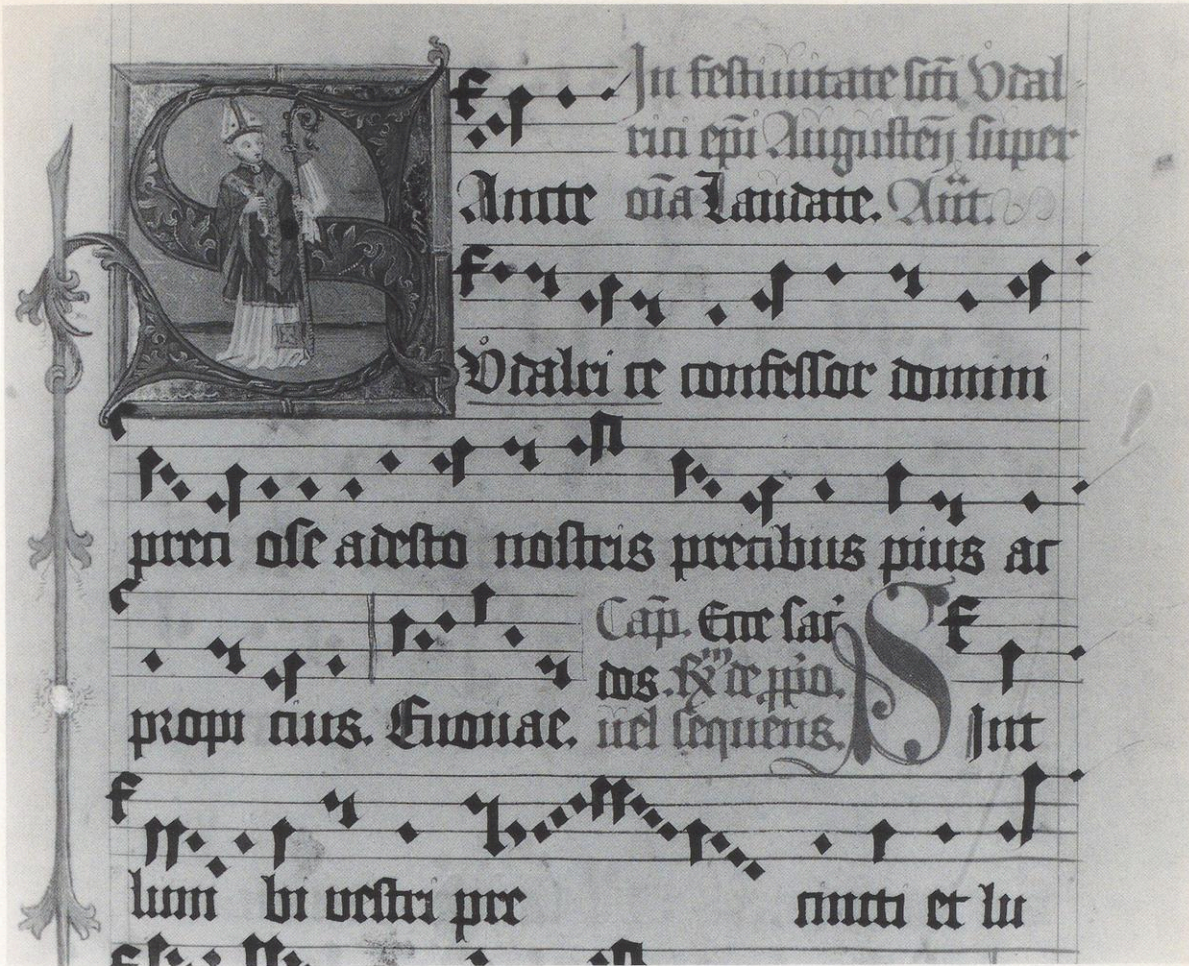 In festiuitate scti Vdal
rici epi Augusteñ super
Sancte oia Laudate. Añt.
Vdalri ce confessor domini
preci ose adesto nostris precibus pius ac
propi cius. Euouae.
Cap. Ecce sacer
dos. Rm de ppio.
uel sequens. Sint
lum bi vestri pre cincti et lu